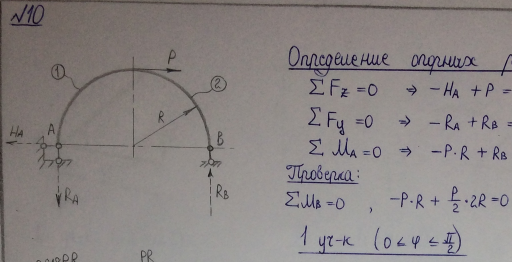 №10
① P ②
R
A B
HA
RA RB
PR
Определение опорных
ΣFz = 0 ⇒ -HA + P =
ΣFy = 0 ⇒ -RA + RB =
ΣMA = 0 ⇒ -P·R + RB
Проверка:
ΣMB = 0 , -P·R + P/2 · 2R = 0
1 уч-к (0 ≤ φ ≤ π/2)